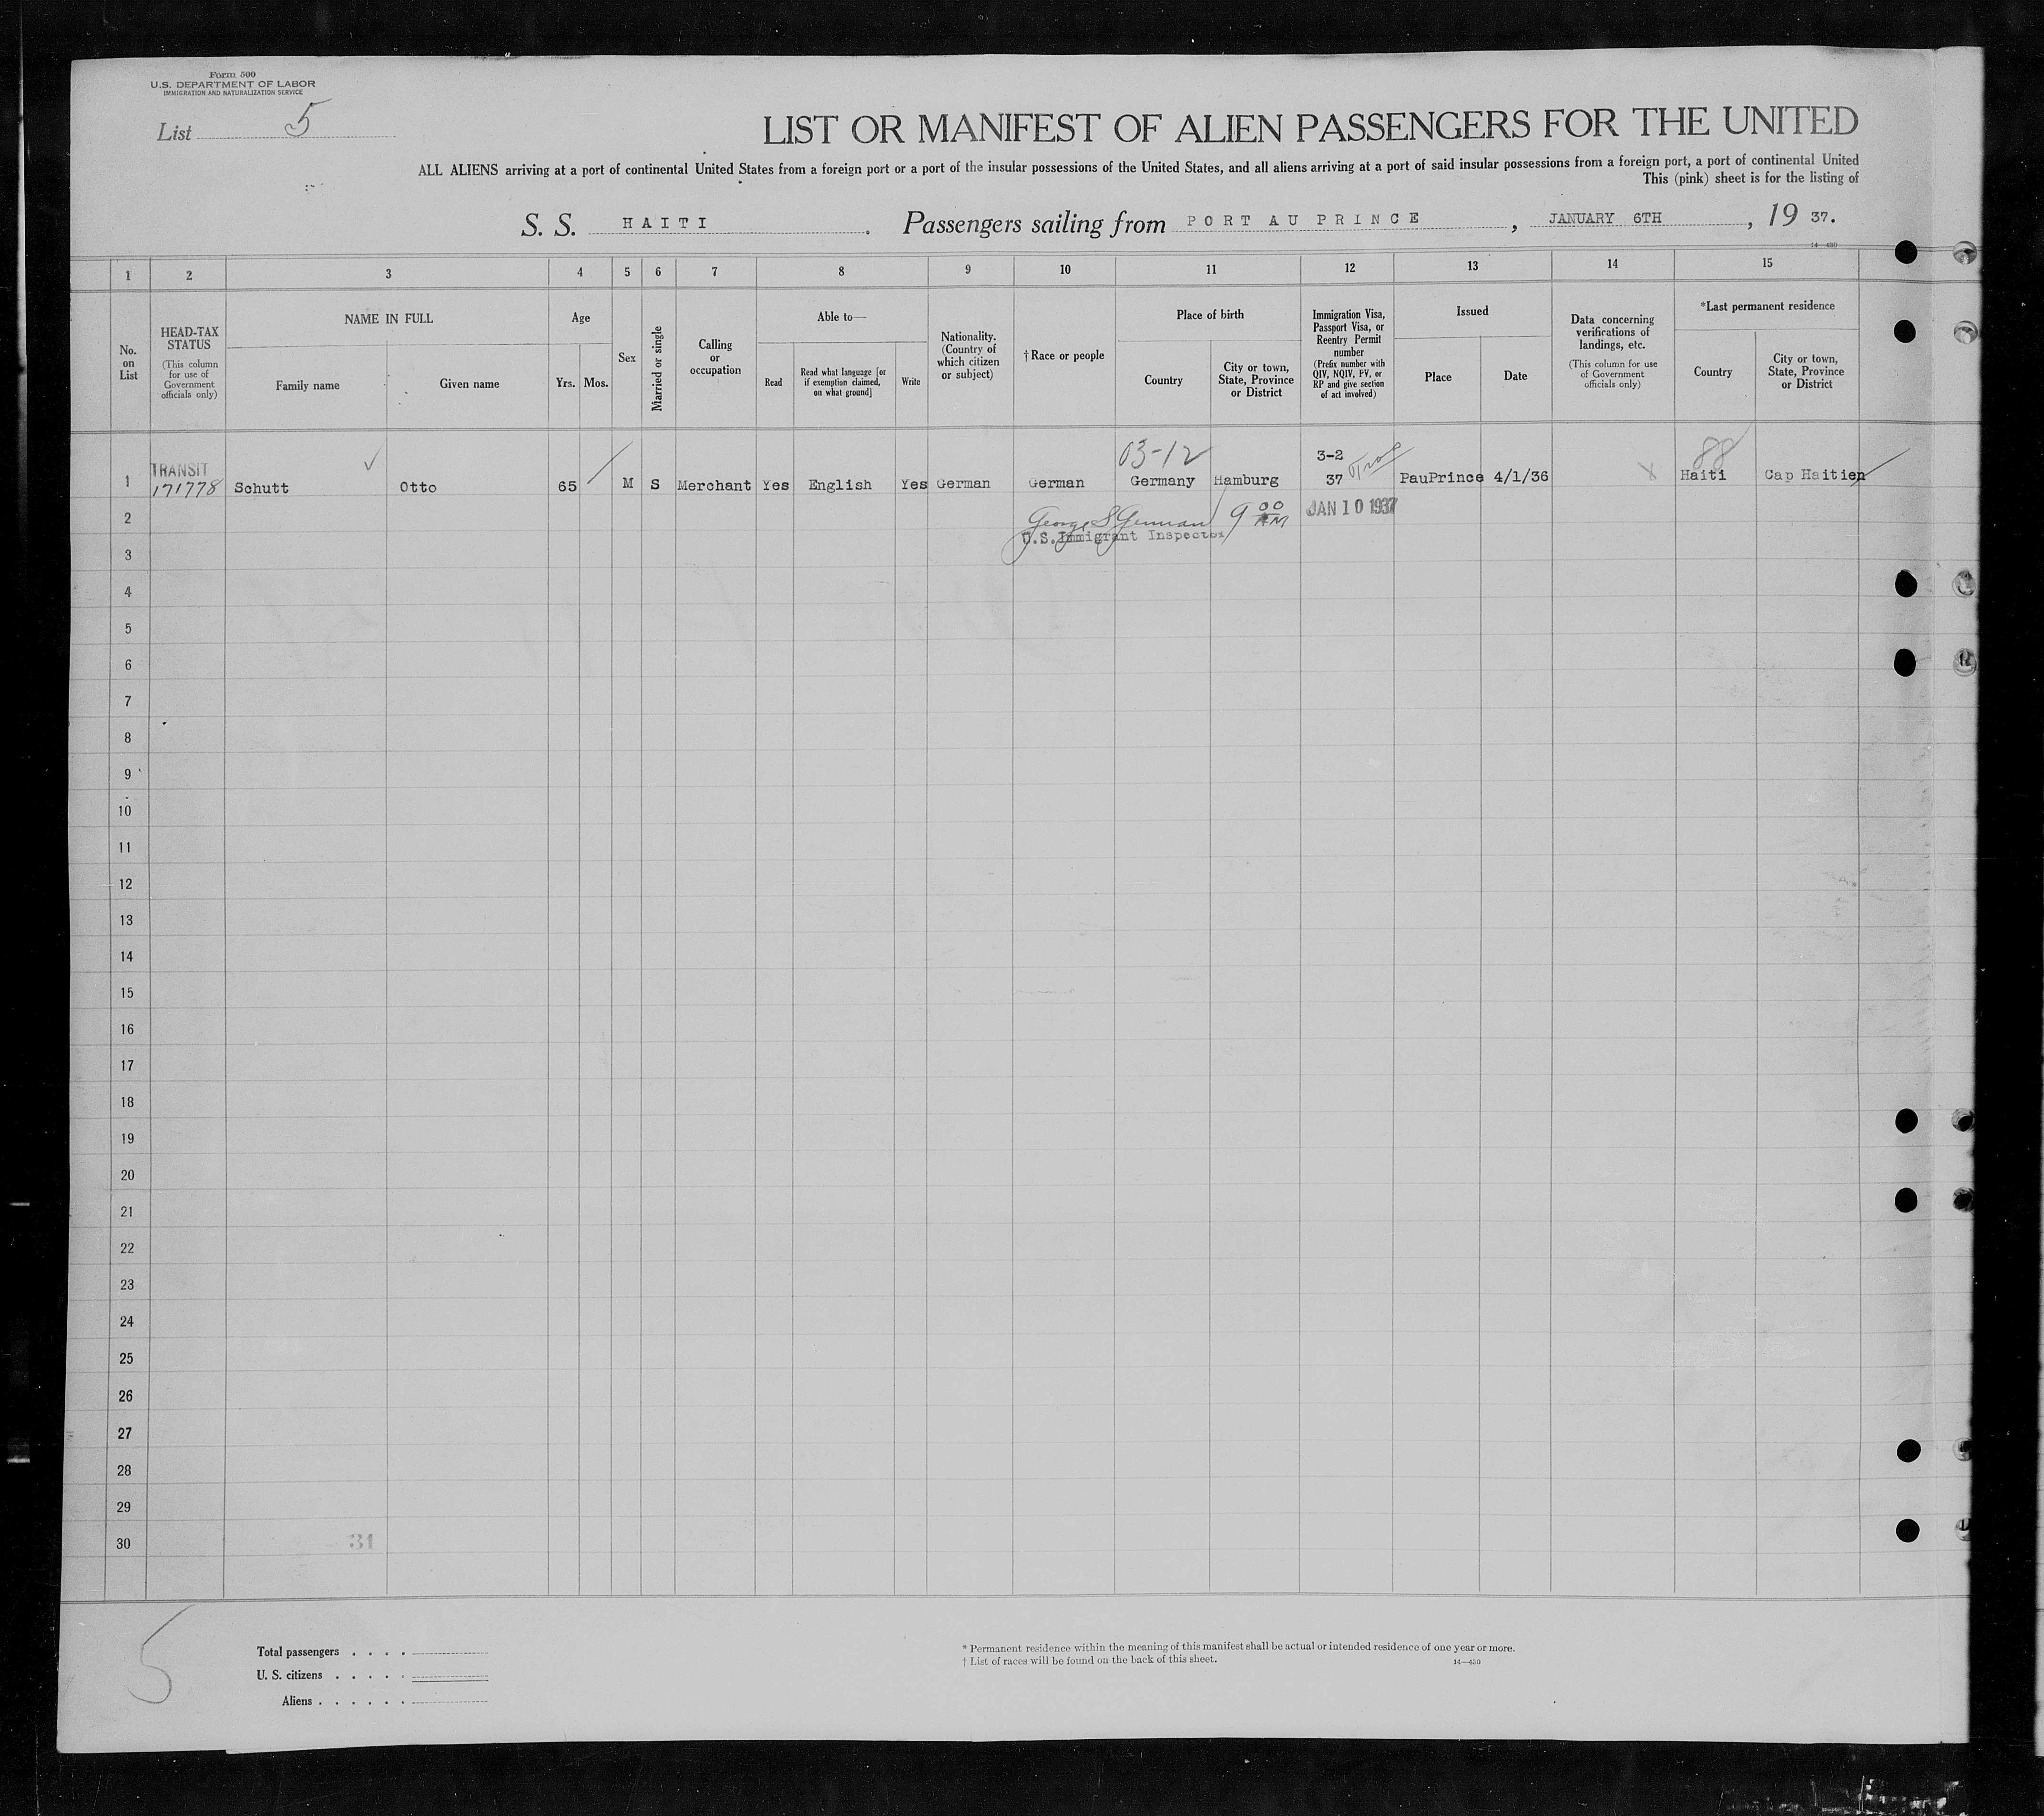 Form 500
U.S. DEPARTMENT OF LABOR
IMMIGRATION AND NATURALIZATION SERVICE
List 5
LIST OR MANIFEST OF ALIEN PASSENGERS FOR THE UNITED
ALL ALIENS arriving at a port of continental United States from a foreign port or a port of the insular possessions of the United States, and all aliens arriving at a port of said insular possessions from a foreign port, a port of continental United
This (pink) sheet is for the listing of
S. S. HAITI . Passengers sailing from PORT AU PRINCE , JANUARY 6TH , 19 37.
14—430
1 2 3 4 5 6 7 8 9 10 11 12 13 14 15
No. on List
HEAD-TAX STATUS
(This column for use of Government officials only)
NAME IN FULL
Family name
Given name
Age
Yrs.
Mos.
Sex
Married or single
Calling or occupation
Able to—
Read
Read what language [or if exemption claimed, on what ground]
Write
Nationality. (Country of which citizen or subject)
† Race or people
Place of birth
Country
City or town, State, Province or District
Immigration Visa, Passport Visa, or Reentry Permit number
(Prefix number with QIV, NQIV, PV, or RP and give section of act involved)
Issued
Place
Date
Data concerning verifications of landings, etc.
(This column for use of Government officials only)
*Last permanent residence
Country
City or town, State, Province or District
03-12 3-2 88
TRANSIT
1 171778 Schutt Otto 65 M S Merchant Yes English Yes German German Germany Hamburg 37 PauPrince 4/1/36 Haiti Cap Haitien
2 George S German 9 00 AM JAN 10 1937
U.S. Immigrant Inspector
3
4
5
6
7
8
9
10
11
12
13
14
15
16
17
18
19
20
21
22
23
24
25
26
27
28
29
30 31
5
Total passengers . . . .
U. S. citizens . . . . .
Aliens . . . . . .
* Permanent residence within the meaning of this manifest shall be actual or intended residence of one year or more.
† List of races will be found on the back of this sheet.
14—430